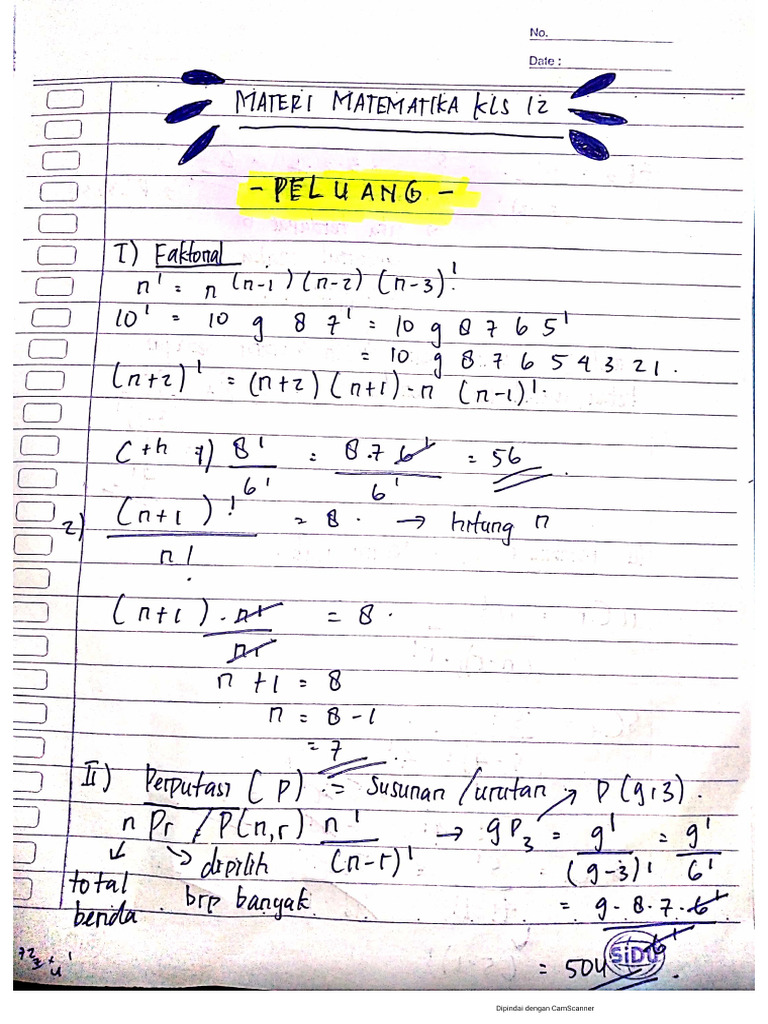 No.
Date :
MATERI MATEMATIKA KLS 12
- PELUANG -
I) Faktorial
n! = n (n-1) (n-2) (n-3)!
10! = 10 9 8 7! = 10 9 8 7 6 5!
= 10 9 8 7 6 5 4 3 2 1.
(n+2)! = (n+2) (n+1) . n (n-1)!
C th 1) 8! / 6! = 8.7 6! / 6! = 56
2) (n+1)! / n! = 8. → hitung n
(n+1) . n! / n! = 8.
n +1 = 8
n = 8 - 1
= 7
II) Perputasi (P) = Susunan /urutan P(9,3).
n Pr / P(n,r) n! / (n-r)! → 9P3 = 9! / (9-3)! = 9! / 6!
total benda
dipilih brp banyak
= 9.8.7.6! / 6!
= 504.
SiDU
Dipindai dengan CamScanner